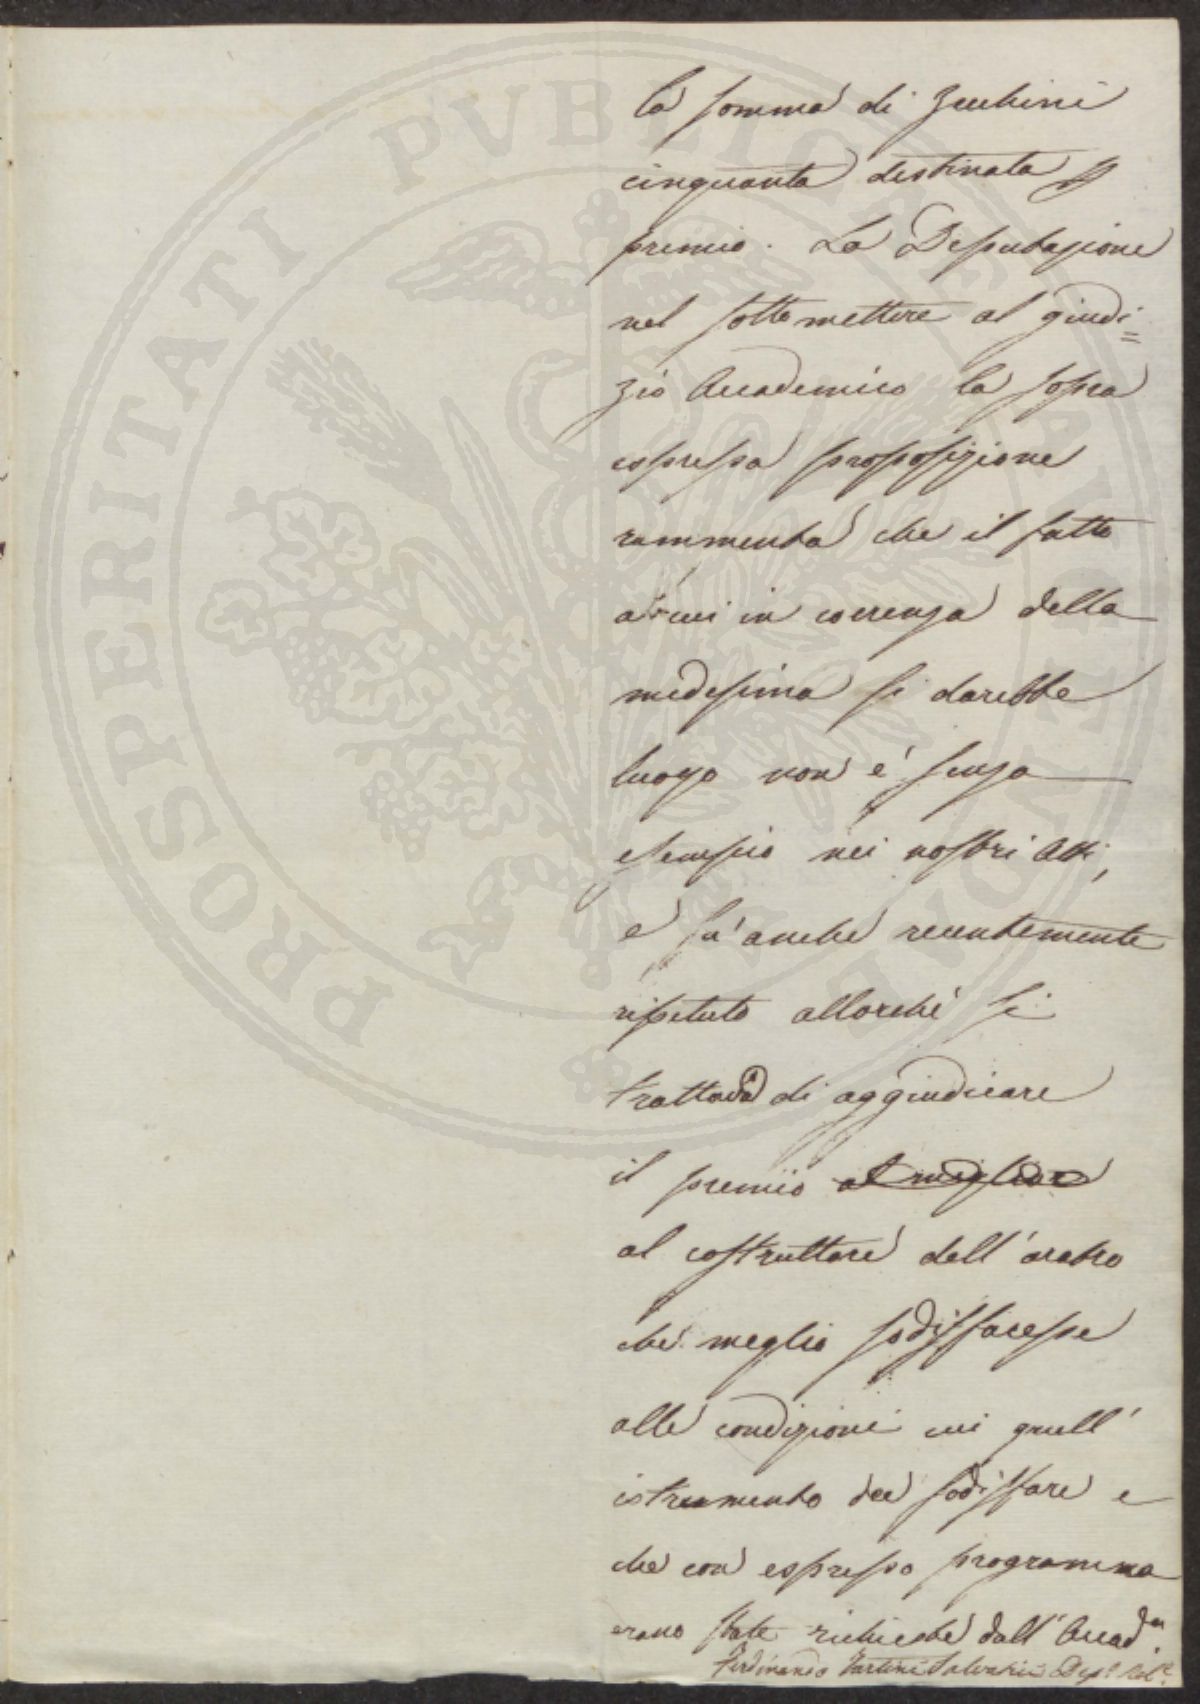 la somma di Zecchini
cinquanta destinata p
premio. La Deputazione
nel sottomettere al giudi=
zio Accademico la sopra
espressa proposizione
rammenta che il fatto
a cui in coerenza della
medesima si darebbe
luogo non é senza
esempio nei nostri Atti,
e fu anche recentemente
ripetuto allorché si
trattava di aggiudicare
il premio al migliore
al costruttore dell'aratro
che meglio sodisfacesse
alle condizioni cui quell'
istrumento dee sodisfare e
che con espresso programma
erano state richieste dall'Accad.
Ferdinando Tartini Salvatici Dep.
PROSPERITATI PVBLICAE